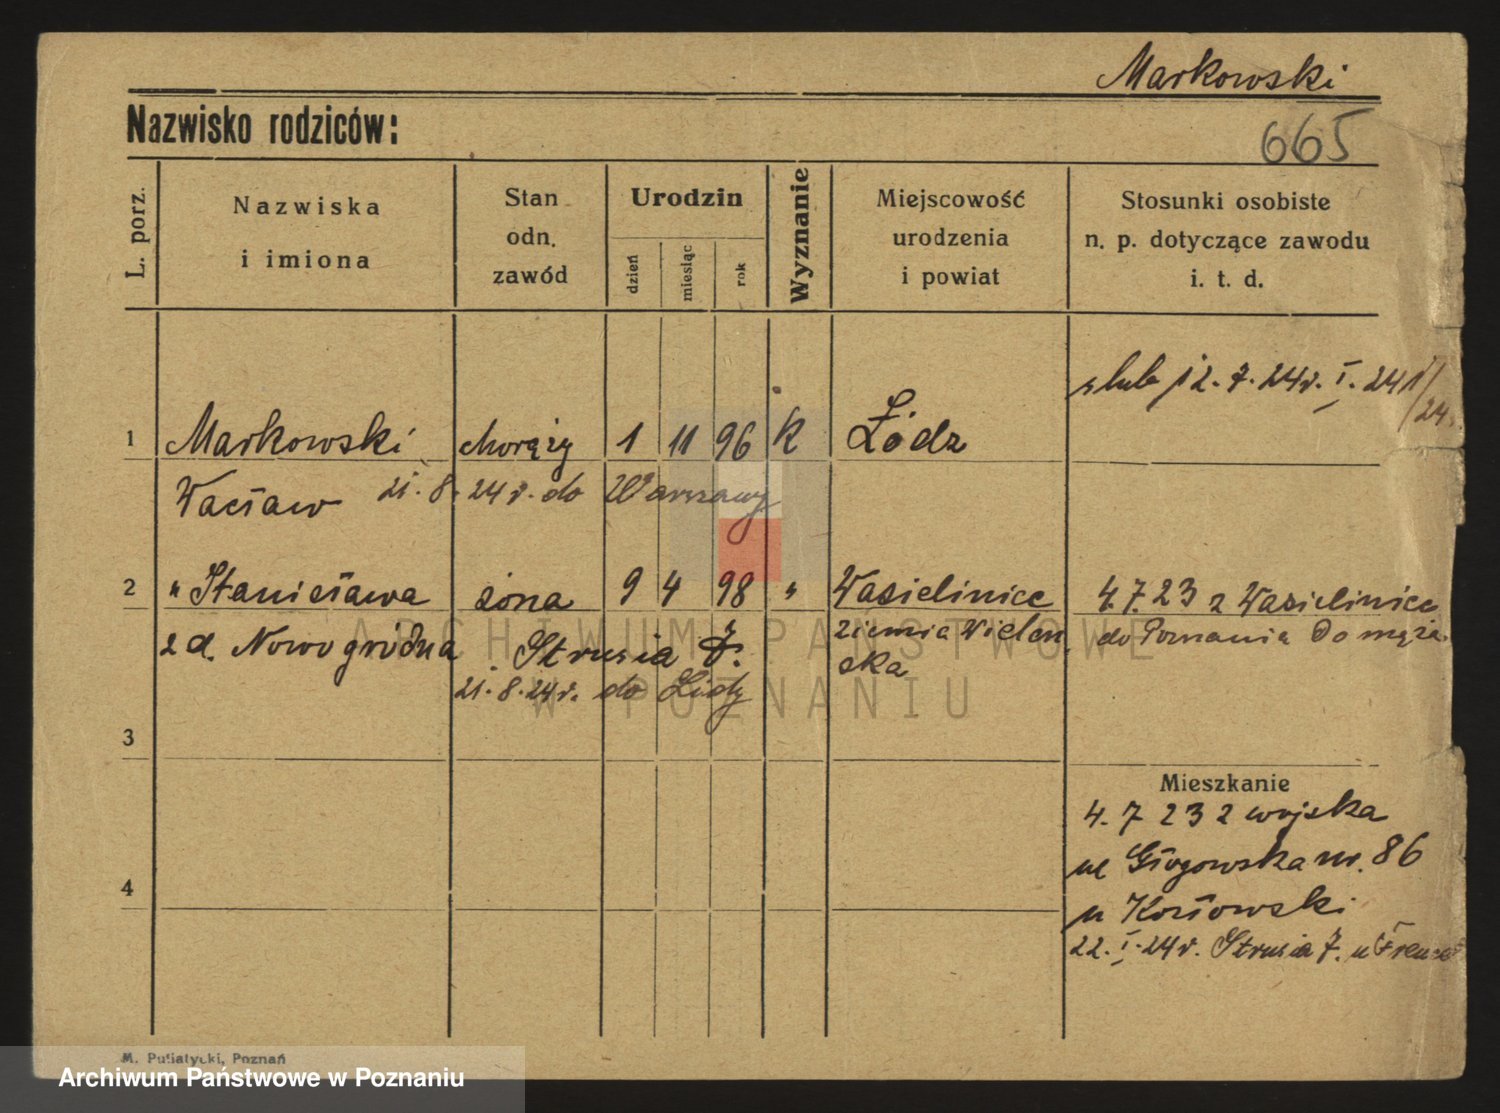 Markowski
Nazwisko rodziców:
665
L. porz.
Nazwiska
i imiona
Stan
odn.
zawód
Urodzin
dzień
miesiąc
rok
Wyznanie
Miejscowość
urodzenia
i powiat
Stosunki osobiste
n. p. dotyczące zawodu
i. t. d.
ślub 12.7.24r. I. 241/
24.
1 Markowski chorąży 1 11 96 K Łódz
Wacław 21.8.24r. do Warszawy
2 " Stanisława żona 9 4 98 " Wasielinice 4.7.23 z Wasielinice
z d. Nowogródna Strusia 7. ziemia Wilen do Poznania do męża
ska
21.8.24r. do Lidy
ARCHIWUM PAŃSTWOWE
W POZNANIU
3
Mieszkanie
4.7 23 z wojska
ul Głogowska nr. 86
4
u Kozłowski
22.I.24r. Strusia 7. u
M. Putiatycki, Poznań
Archiwum Państwowe w Poznaniu